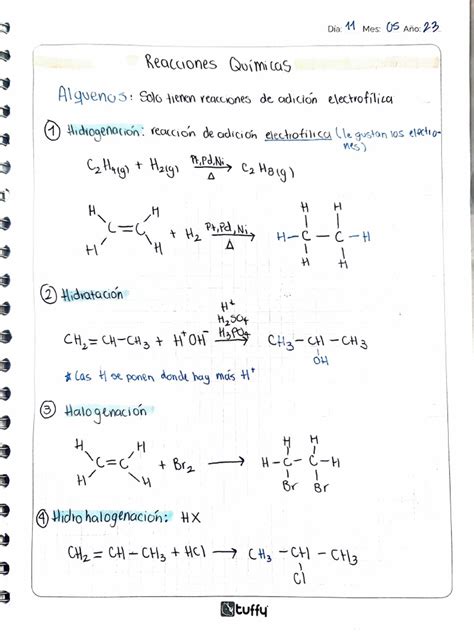 Día: 11 Mes: 05 Año: 23
Reacciones Químicas
Alquenos: Solo tienen reacciones de adición electrofílica
① Hidrogenación: reacción de adición electrofílica (le gustan los electro-
nes)
C₂H₄(g) + H₂(g) Pt,Pd,Ni → Δ C₂H₈(g)
H H H H
C=C + H₂ Pt,Pd,Ni → Δ H-C-C-H
H H H H
② Hidratación
H⁺
H₂SO₄
CH₂=CH-CH₃ + H⁺OH⁻ H₃PO₄ → CH₃-CH-CH₃
OH
* Las H se ponen donde hay más H⁺
③ Halogenación
H H H H
C=C + Br₂ → H-C-C-H
H H Br Br
④ Hidrohalogenación: HX
CH₂=CH-CH₃ + HCl → CH₃-CH-CH₃
Cl
tuffy